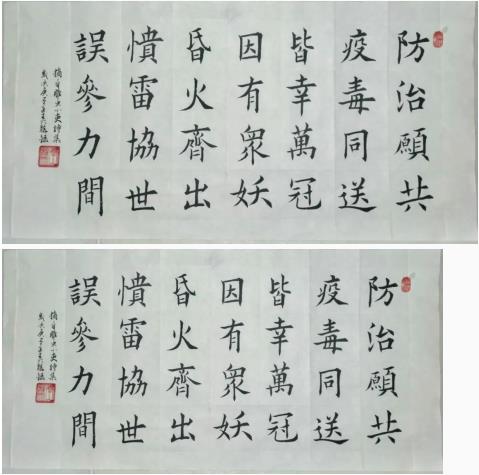 防治願共
疫毒同送
皆幸萬冠
因有衆妖
昏火齊出
憤雷協世
誤參力間
防治願共
疫毒同送
皆幸萬冠
因有衆妖
昏火齊出
憤雷協世
誤參力間